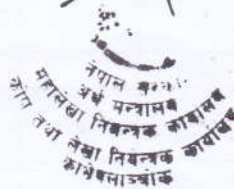 नेपाल सरकार
अर्थ मन्त्रालय
महालेखा नियन्त्रक कार्यालय
कोष तथा लेखा नियन्त्रक कार्यालय